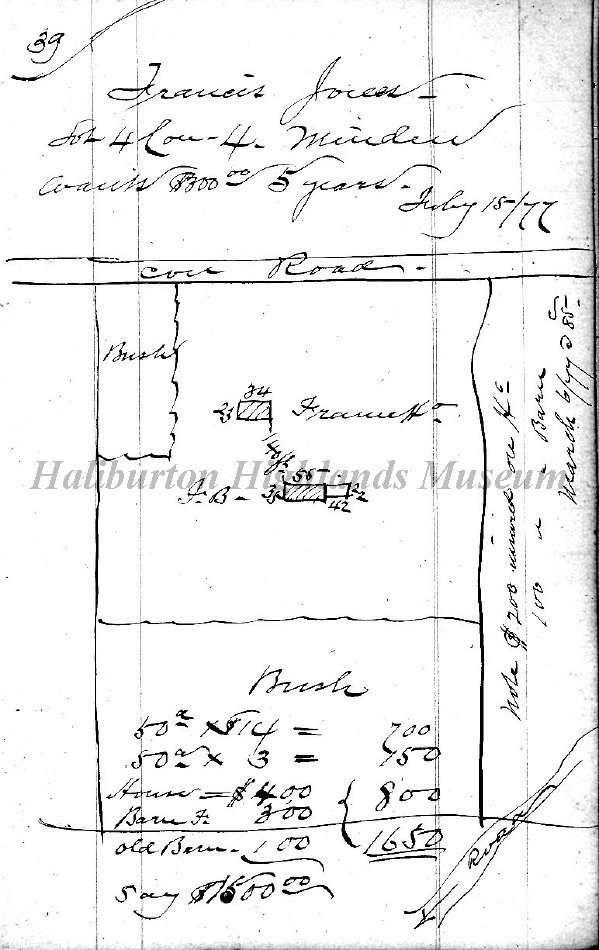 39
Francis Jones
Lot 4 Con - 4. Minden
Wants $300 00 5 years.
July 15/77
Con Road.
Bush
34
23
Frame Ho
140 ft
F. B -
55
36
42
22
Note $200 insured on Ho
100 " " Barn
March 6/79 @ 85
Bush
50 a x $14 = 700
50 a x 3 = 150
House = $400
Barn F. 300
800
old Barn - 100
1650
Say $1500 00
Road
Haliburton Highlands Museum